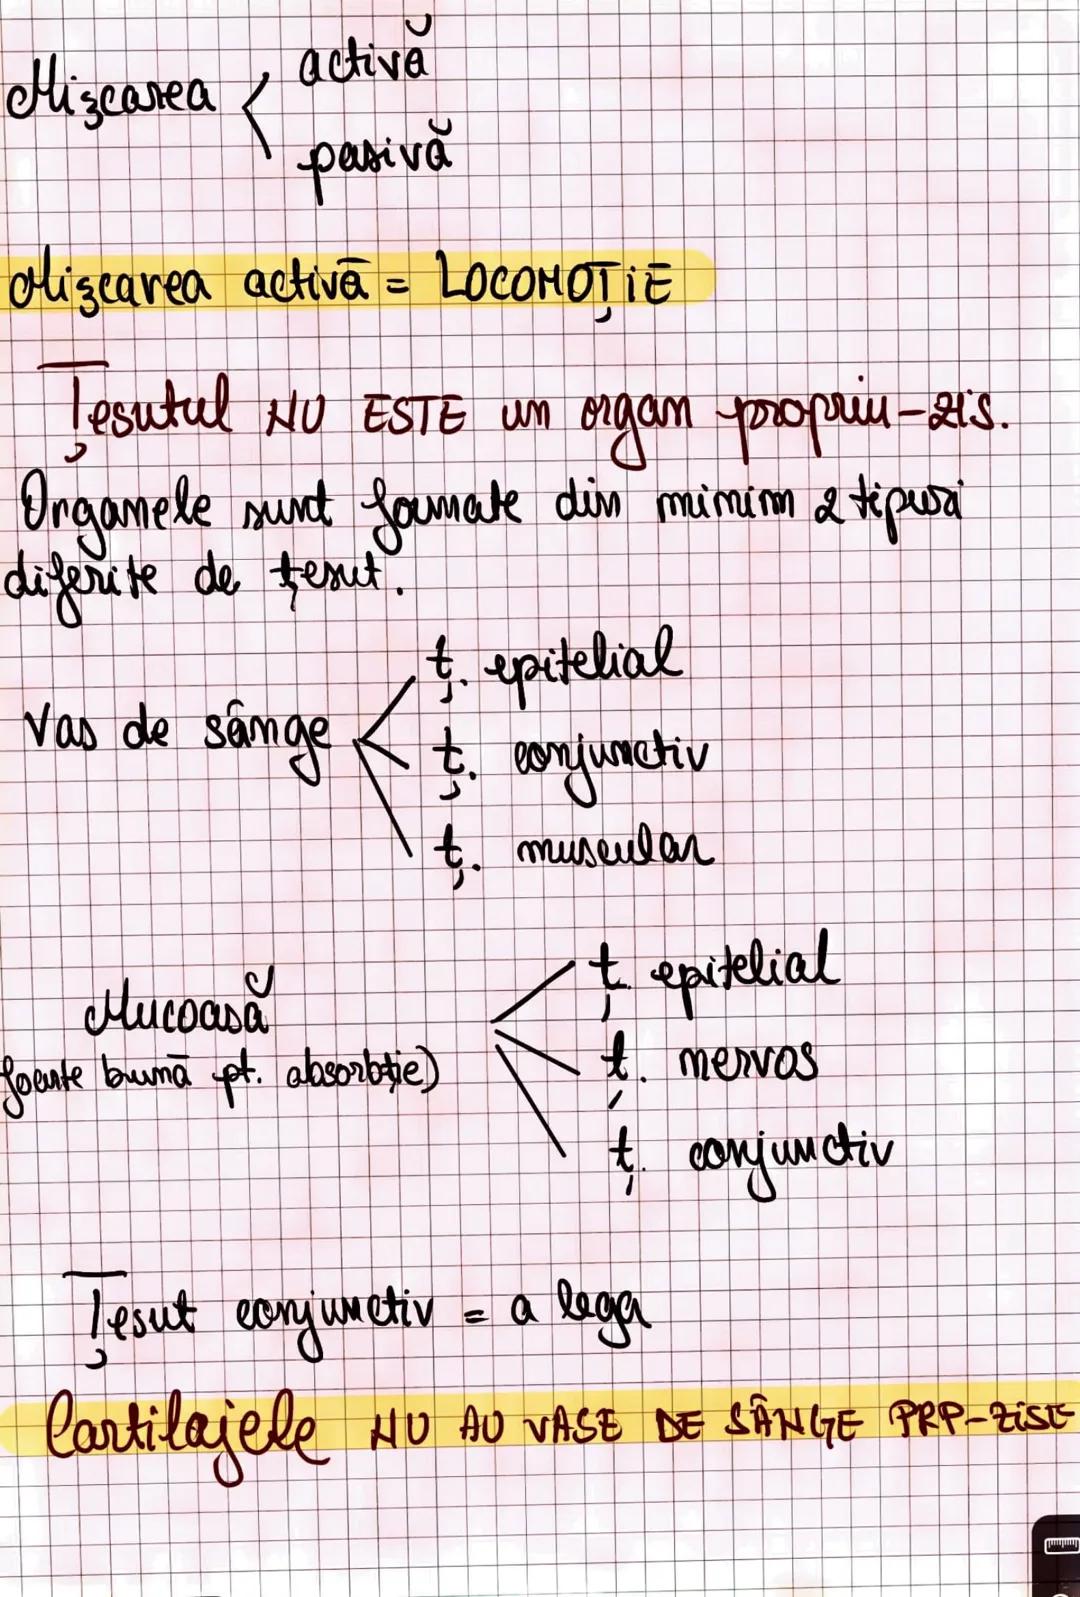 Mișcarea
activă
pasivă
Mișcarea activă = LOCOMOȚIE
Țesutul NU ESTE un organ propriu-zis.
Organele sunt formate din minim 2 tipuri
diferite de țesut.
Vas de sânge
ț. epitelial
ț. conjunctiv
ț. muscular
Mucoasă
foarte bună pt. absorbție)
ț. epitelial
ț. nervos
ț. conjunctiv
Țesut conjunctiv = a lega
Cartilajele NU AU VASE DE SÂNGE PRP-ZISE